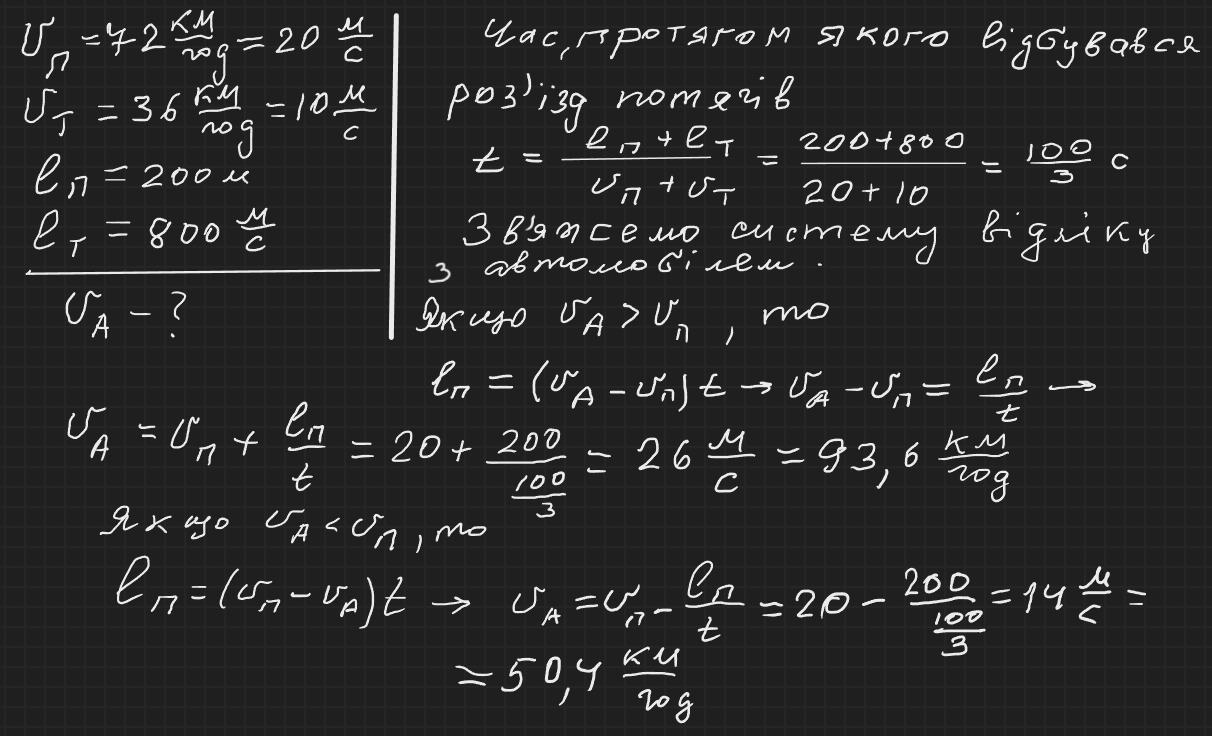 υ_П = 72 км/год = 20 м/с
υ_Т = 36 км/год = 10 м/с
ℓ_П = 200 м
ℓ_Т = 800 м/с
υ_А - ?
Час, протягом якого відбувався
роз'їзд потягів
t = (ℓ_П + ℓ_Т)/(υ_П + υ_Т) = (200+800)/(20+10) = 100/3 с
Зв'яжемо систему відліку
з автомобілем.
Якщо υ_А > υ_П, то
ℓ_П = (υ_А - υ_П) t → υ_А - υ_П = ℓ_П/t →
υ_А = υ_П + ℓ_П/t = 20 + 200/(100/3) = 26 м/с = 93,6 км/год
Якщо υ_А < υ_П, то
ℓ_П = (υ_П - υ_А) t → υ_А = υ_П - ℓ_П/t = 20 - 200/(100/3) = 14 м/с =
= 50,4 км/год